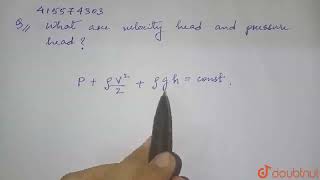 415574303
Q// What are velocity head and pressure
head ?
P + ρ V²/2 + ρ g h = const.
doubtnut